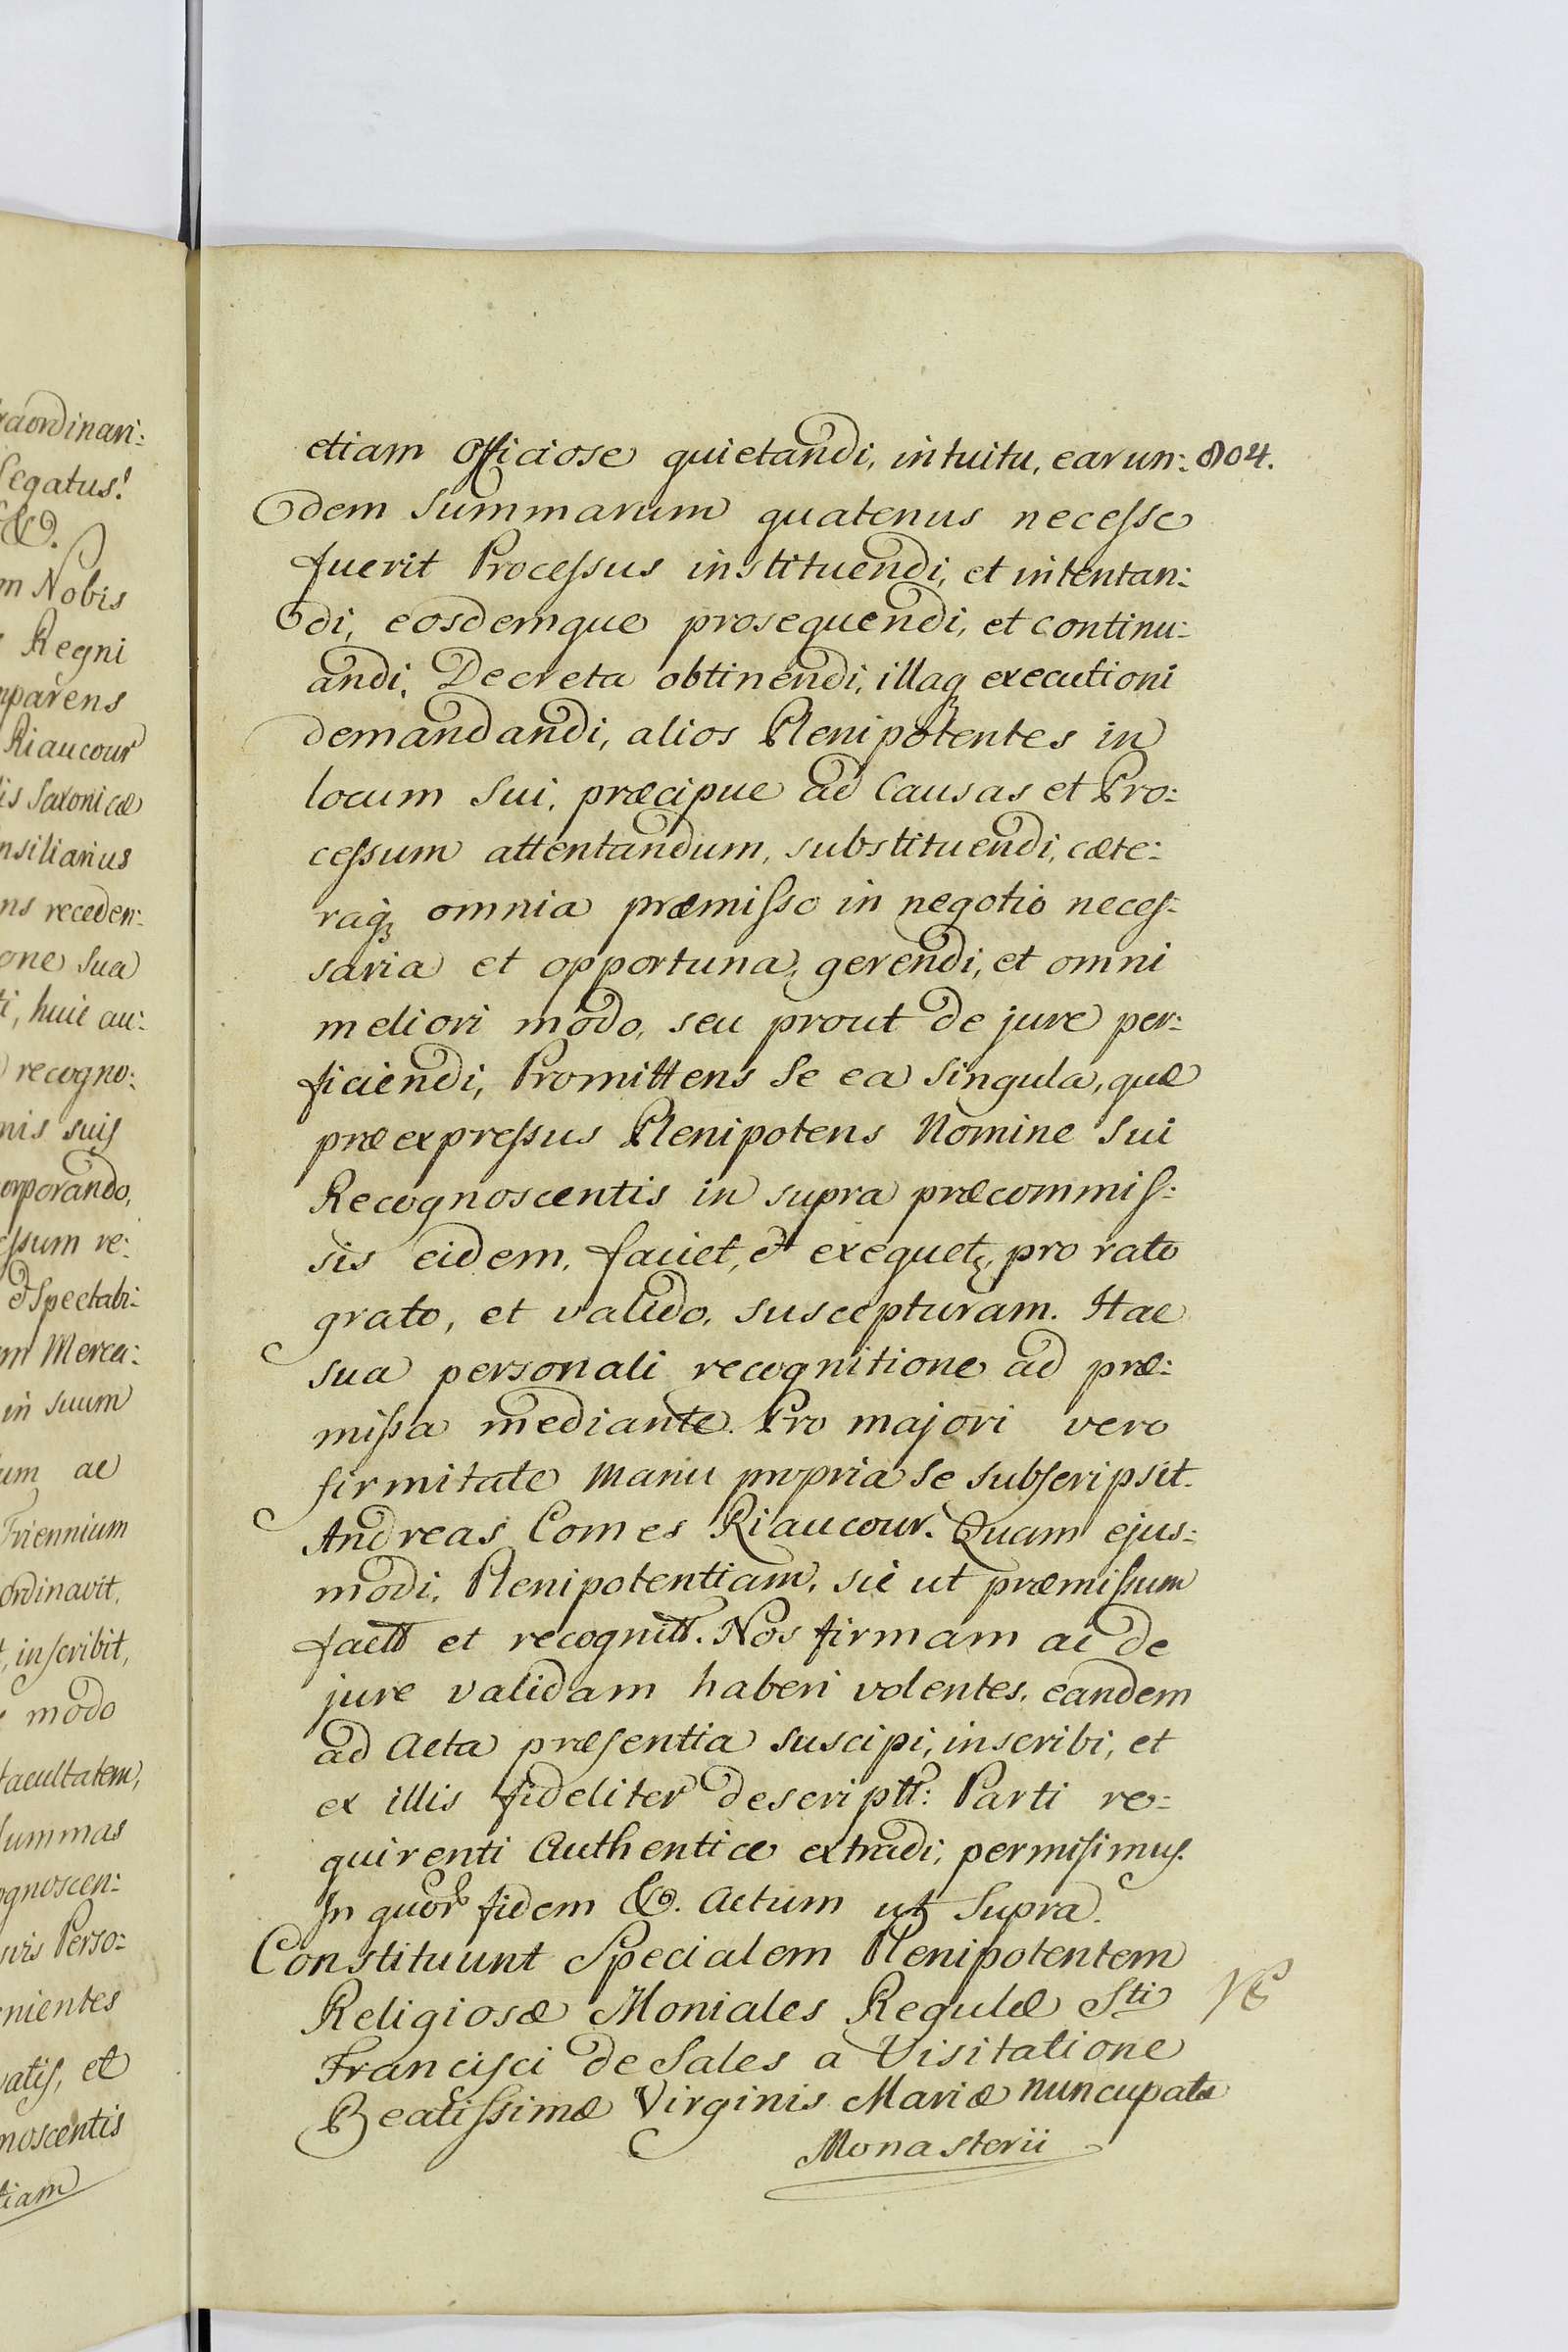 etiam Officiose quietandi, intuitu, earun: 804.
dem Summarum quatenus necesse
fuerit Processus instituendi, et intentan:
di, eosdemque prosequendi, et continu:
andi, Decreta obtinendi, illaq executioni
demandandi, alios Plenipotentes in
locum Sui, præcipue ad Causas et Pro:
cessum attentandum, substituendi, cæte:
raq omnia præmisso in negotio neces:
saria et opportuna, gerendi, et omni
meliori modo, seu prout de jure per:
ficiendi, Promittens Se ea Singula, quæ
præexpressus Plenipotens Nomine Sui
Recognoscentis in supra præcommis:
sis eidem, faciet, et exequet, pro rato
grato, et valido, suscepturam. Hac
sua personali recognitione ad præ:
missa mediante. Pro majori vero
firmitate Manu propria Se Subscripsit.
Andreas Comes Riaucour. Quam ejus:
modi, Plenipotentiam, sic ut præmissum
factt et recognitt. Nos firmam ac de
jure validam haberi volentes, eandem
ad Acta præsentia suscipi, inscribi, et
ex illis fideliter descriptt: Parti re:
quirenti Authentice extradi, permisimus.
In quor fidem &. Actum ut Supra.
Constituunt Specialem Plenipotentem
Religiosæ Moniales Regulæ Sti
Francisci de Sales a Visitatione
Beatissimæ Virginis Mariæ nuncupata
Monasterii
raordinari:
Legatus!
&.
m Nobis
Regni
mparens
Riaucour
is Saxonicæ
nsiliarius
ns receden:
one Sua
ti, huic au:
recogno:
nis suis
orporando,
essum re:
et Spectabi:
m Merca:
in suum
um ac
Triennium
ordinavit,
t, inscribit,
modo
facultatem,
summas
ognoscen:
uvis Perso:
enientes
vatis, et
noscentis
tiam